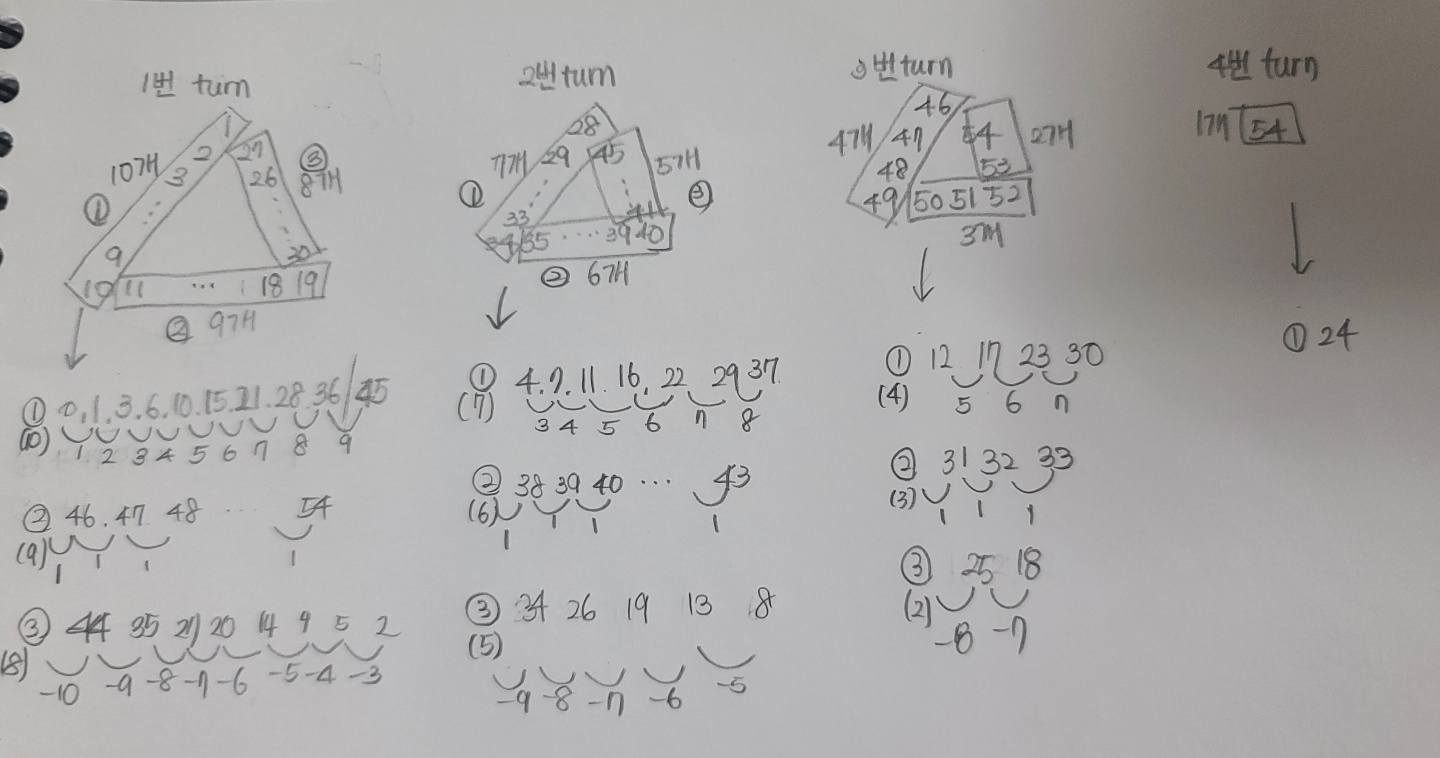 1번 turn
1
2
3
⋮
9
10
10개
①
11 ... 18 19
② 9개
27
26
⋮
20
③
8개
① 0, 1. 3. 6. 10. 15. 21. 28 36 / 45
(10) 1 2 3 4 5 6 7 8 9
② 46. 47 48 ... 54
(9) 1 1 1 1
③ 44 35 27 20 14 9 5 2
(8) -10 -9 -8 -7 -6 -5 -4 -3
2번 turn
28
29
⋮
33
34
7개
①
35 .... 39 40
② 6개
45
⋮
41
5개
③
① 4. 7. 11. 16. 22 29 37.
(7) 3 4 5 6 7 8
② 38 39 40 ... 43
(6) 1 1 1 1
③ 34 26 19 13 8
(5) -9 -8 -7 -6 -5
3번 turn
46
47
48
49
4개
50 51 52
3개
54
53
2개
① 12 17 23 30
(4) 5 6 7
② 31 32 33
(3) 1 1 1
③ 25 18
(2) -8 -7
4번 turn
1개 54
① 24